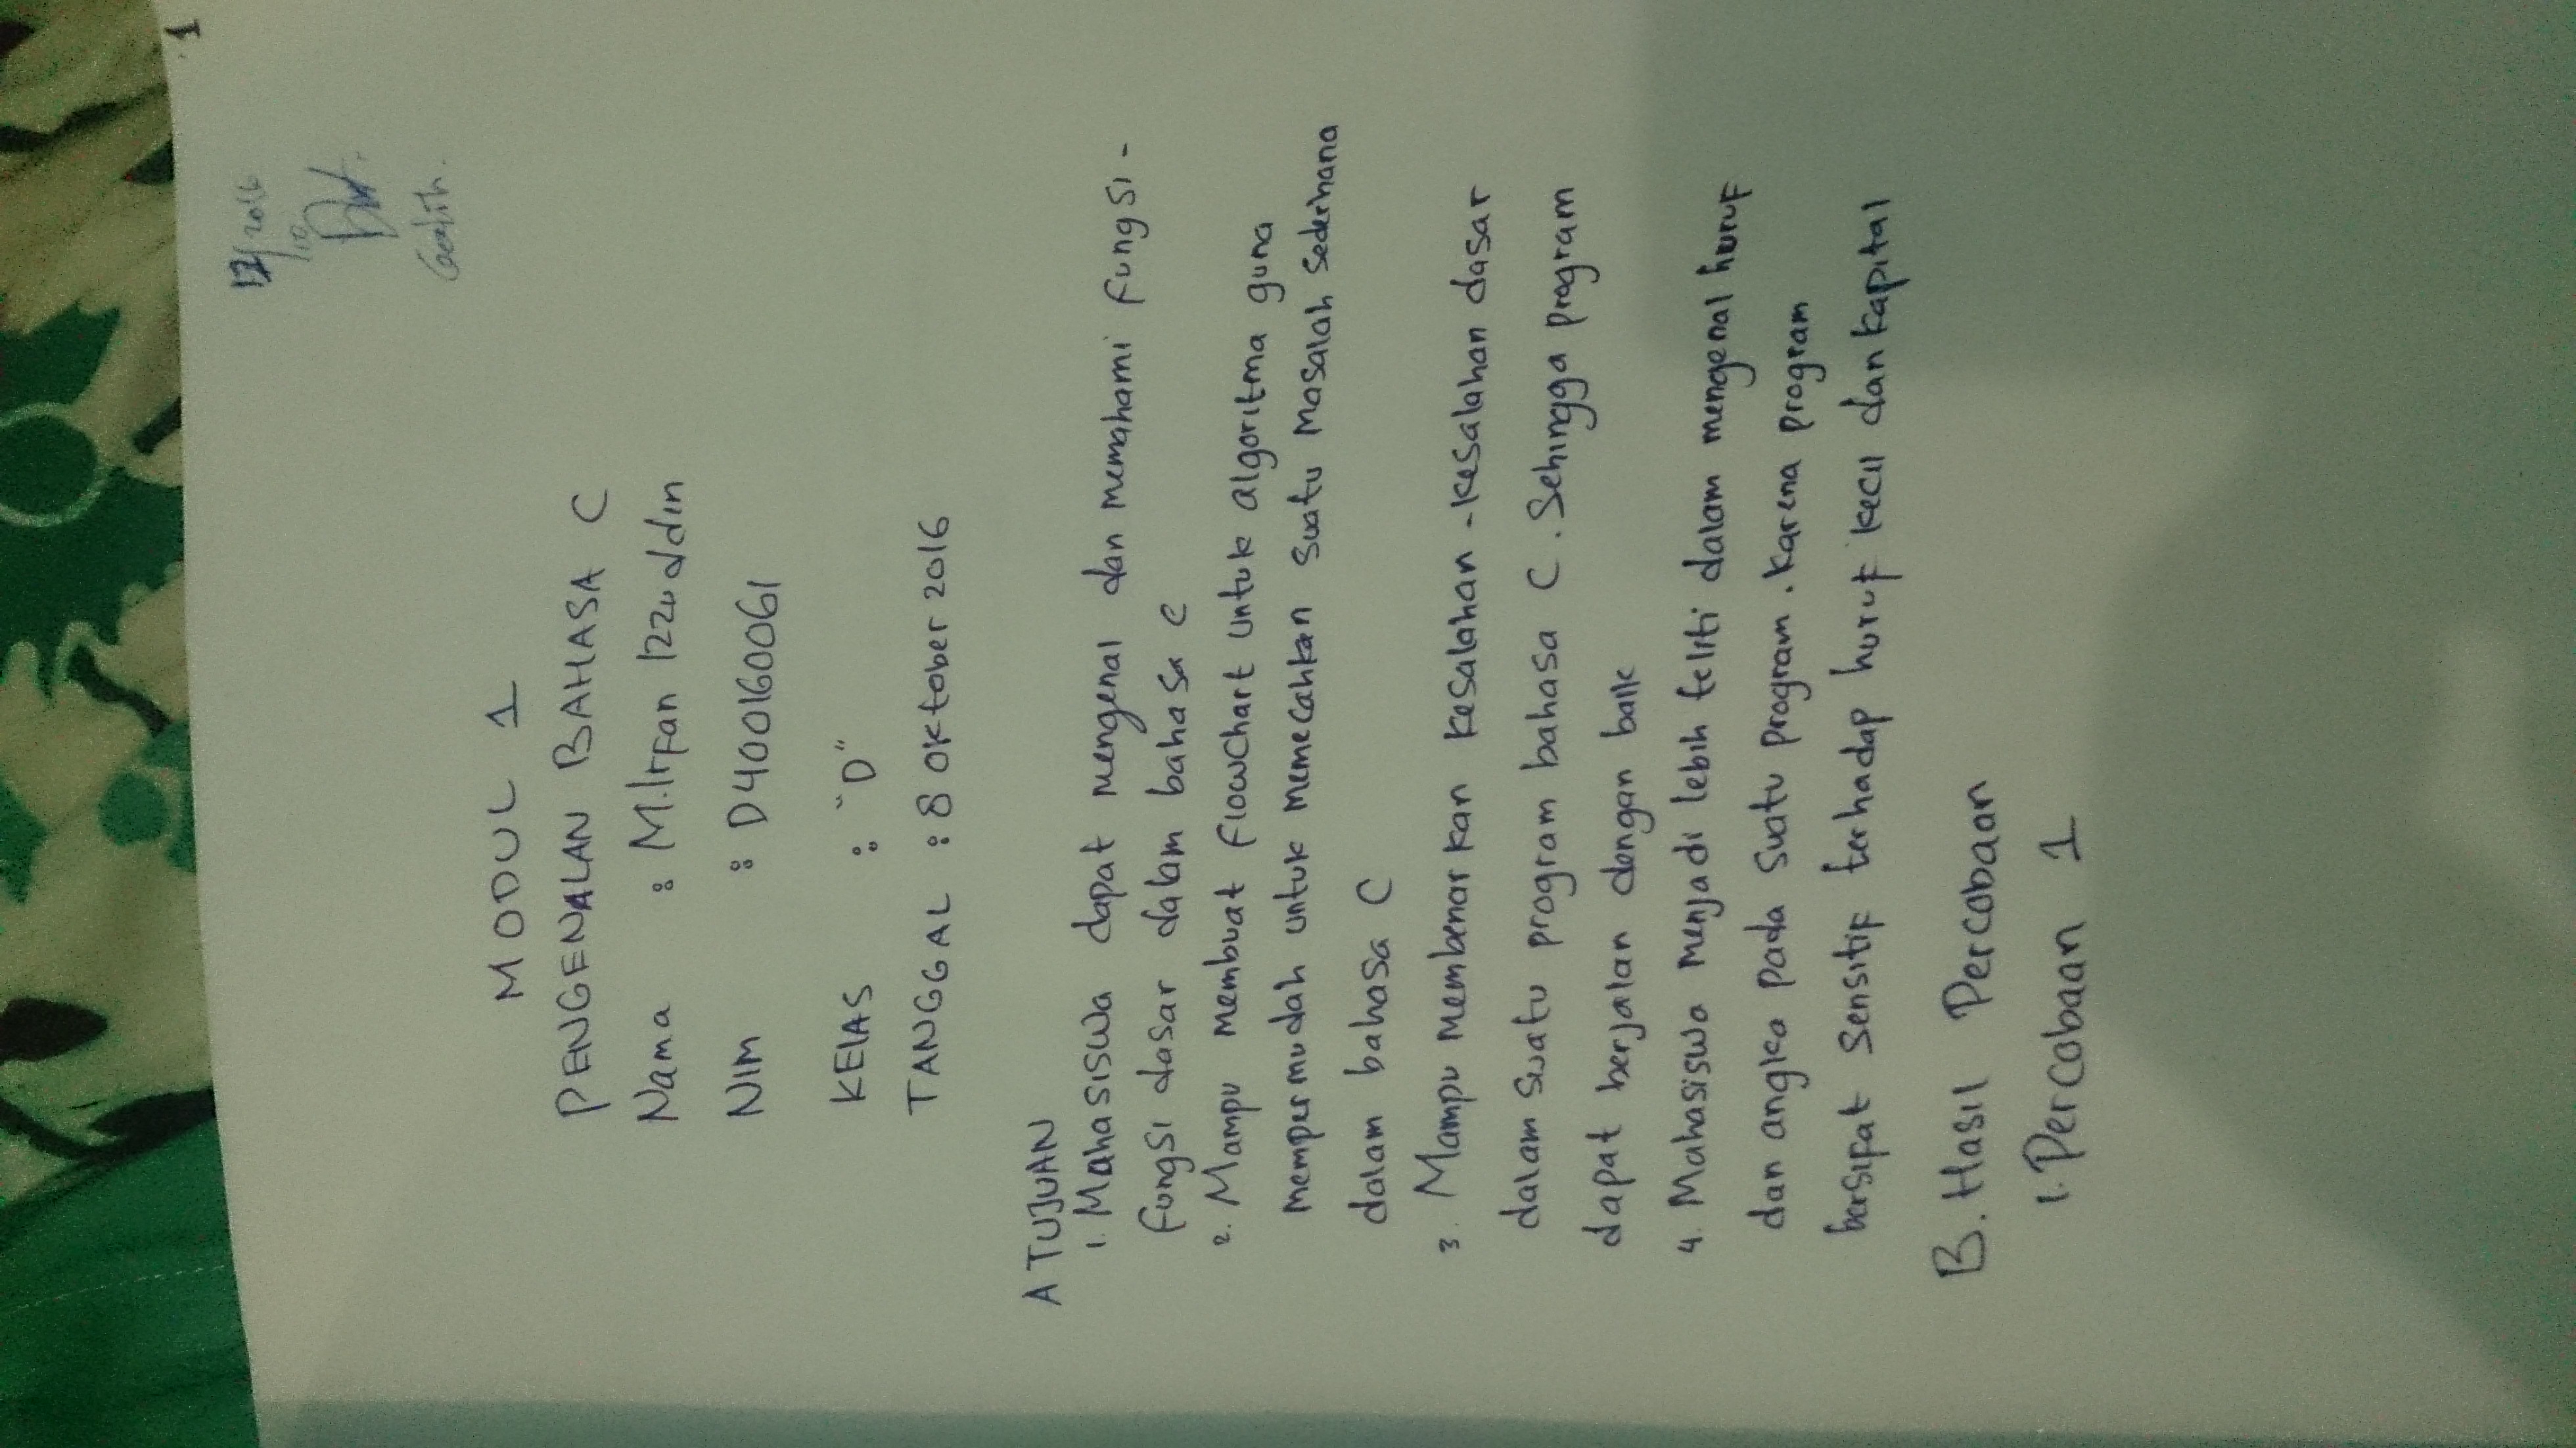 1
12/10 2016
MODUL 1
PENGENALAN BAHASA C
Nama : M.Irfan Izzuddin
NIM : D400160061
KElAS : "D"
TANGGAL : 8 Oktober 2016
A TUJUAN
1. Mahasiswa dapat mengenal dan memahami fungsi-
fungsi dasar dalam bahasa C
2. Mampu membuat flowchart untuk algoritma guna
mempermudah untuk memecahkan suatu masalah sederhana
dalam bahasa C
3. Mampu membenarkan kesalahan-kesalahan dasar
dalam suatu program bahasa C. Sehingga program
dapat berjalan dengan baik
4. Mahasiswa menjadi lebih teliti dalam mengenal huruf
dan angka pada suatu program. Karena program
bersifat sensitif terhadap huruf kecil dan kapital
B. Hasil Percobaan
1. Percobaan 1